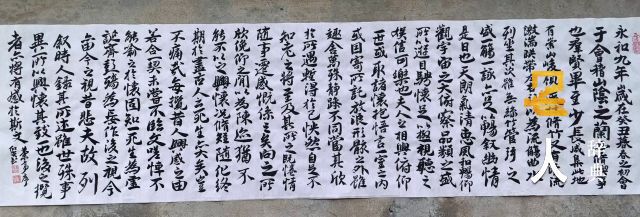 永和九年歲在癸丑暮春之初會
于會稽山陰之蘭亭修禊事
也群賢畢至少長咸集此地
有崇山峻領茂林修竹又
流激湍映帶左右引以為流觴曲水
列坐其次雖無絲竹管弦之
盛一觴一詠亦足以暢敘幽情
是日也天朗氣清惠風和暢仰
觀宇宙之大俯察品類之盛
所以遊目騁懷足以極視聽之
娛信可樂也夫人之相與俯仰
一世或取諸懷抱悟言一室之內
或因寄所託放浪形骸之外雖
趣舍萬殊靜躁不同當其欣
於所遇暫得於己快然自足不
知老之將至及其所之既惓情
隨事遷感慨係之矣向之所
欣俛仰之間以為陳迹猶不
能不以之興懷況脩短隨化終
期於盡古人云死生亦大矣豈
不痛哉每攬昔人興感之由
若合一契未嘗不臨文嗟悼不
能喻之於懷固知一死生為虛
誕齊彭殤為妄作後之視今
亦由今之視昔悲夫故列
敘時人錄其所述雖世殊事
異所以興懷其致一也後之攬
者亦將有感於斯文
人
辞典